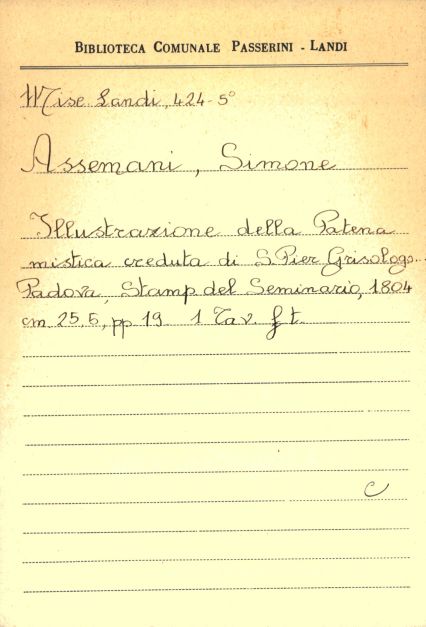 BIBLIOTECA COMUNALE PASSERINI - LANDI
Misc Landi, 424-5°
Assemani, Simone
Illustrazione della Patena
mistica creduta di S. Pier Grisologo
Padova, Stamp del Seminario, 1804
cm 25,5, pp 19 1 Tav. f t.
C